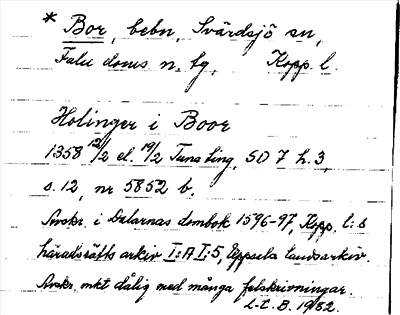 * Bor, bebn, Svärdsjö sn,
Falu doms n. tg, Kopp. l.
Holinger i Boor
1358 12/2 el. 19/2 Tuna ting, SD 7 h. 3,
s. 12, nr 5852 b.
Avskr. i Dalarnas dombok 1596-97, Kopp. l:s
häradsrätts arkiv I:A I:5, Uppsala landsarkiv.
Avskr. mkt dålig med många felskrivningar.
L-E. B. 1982.